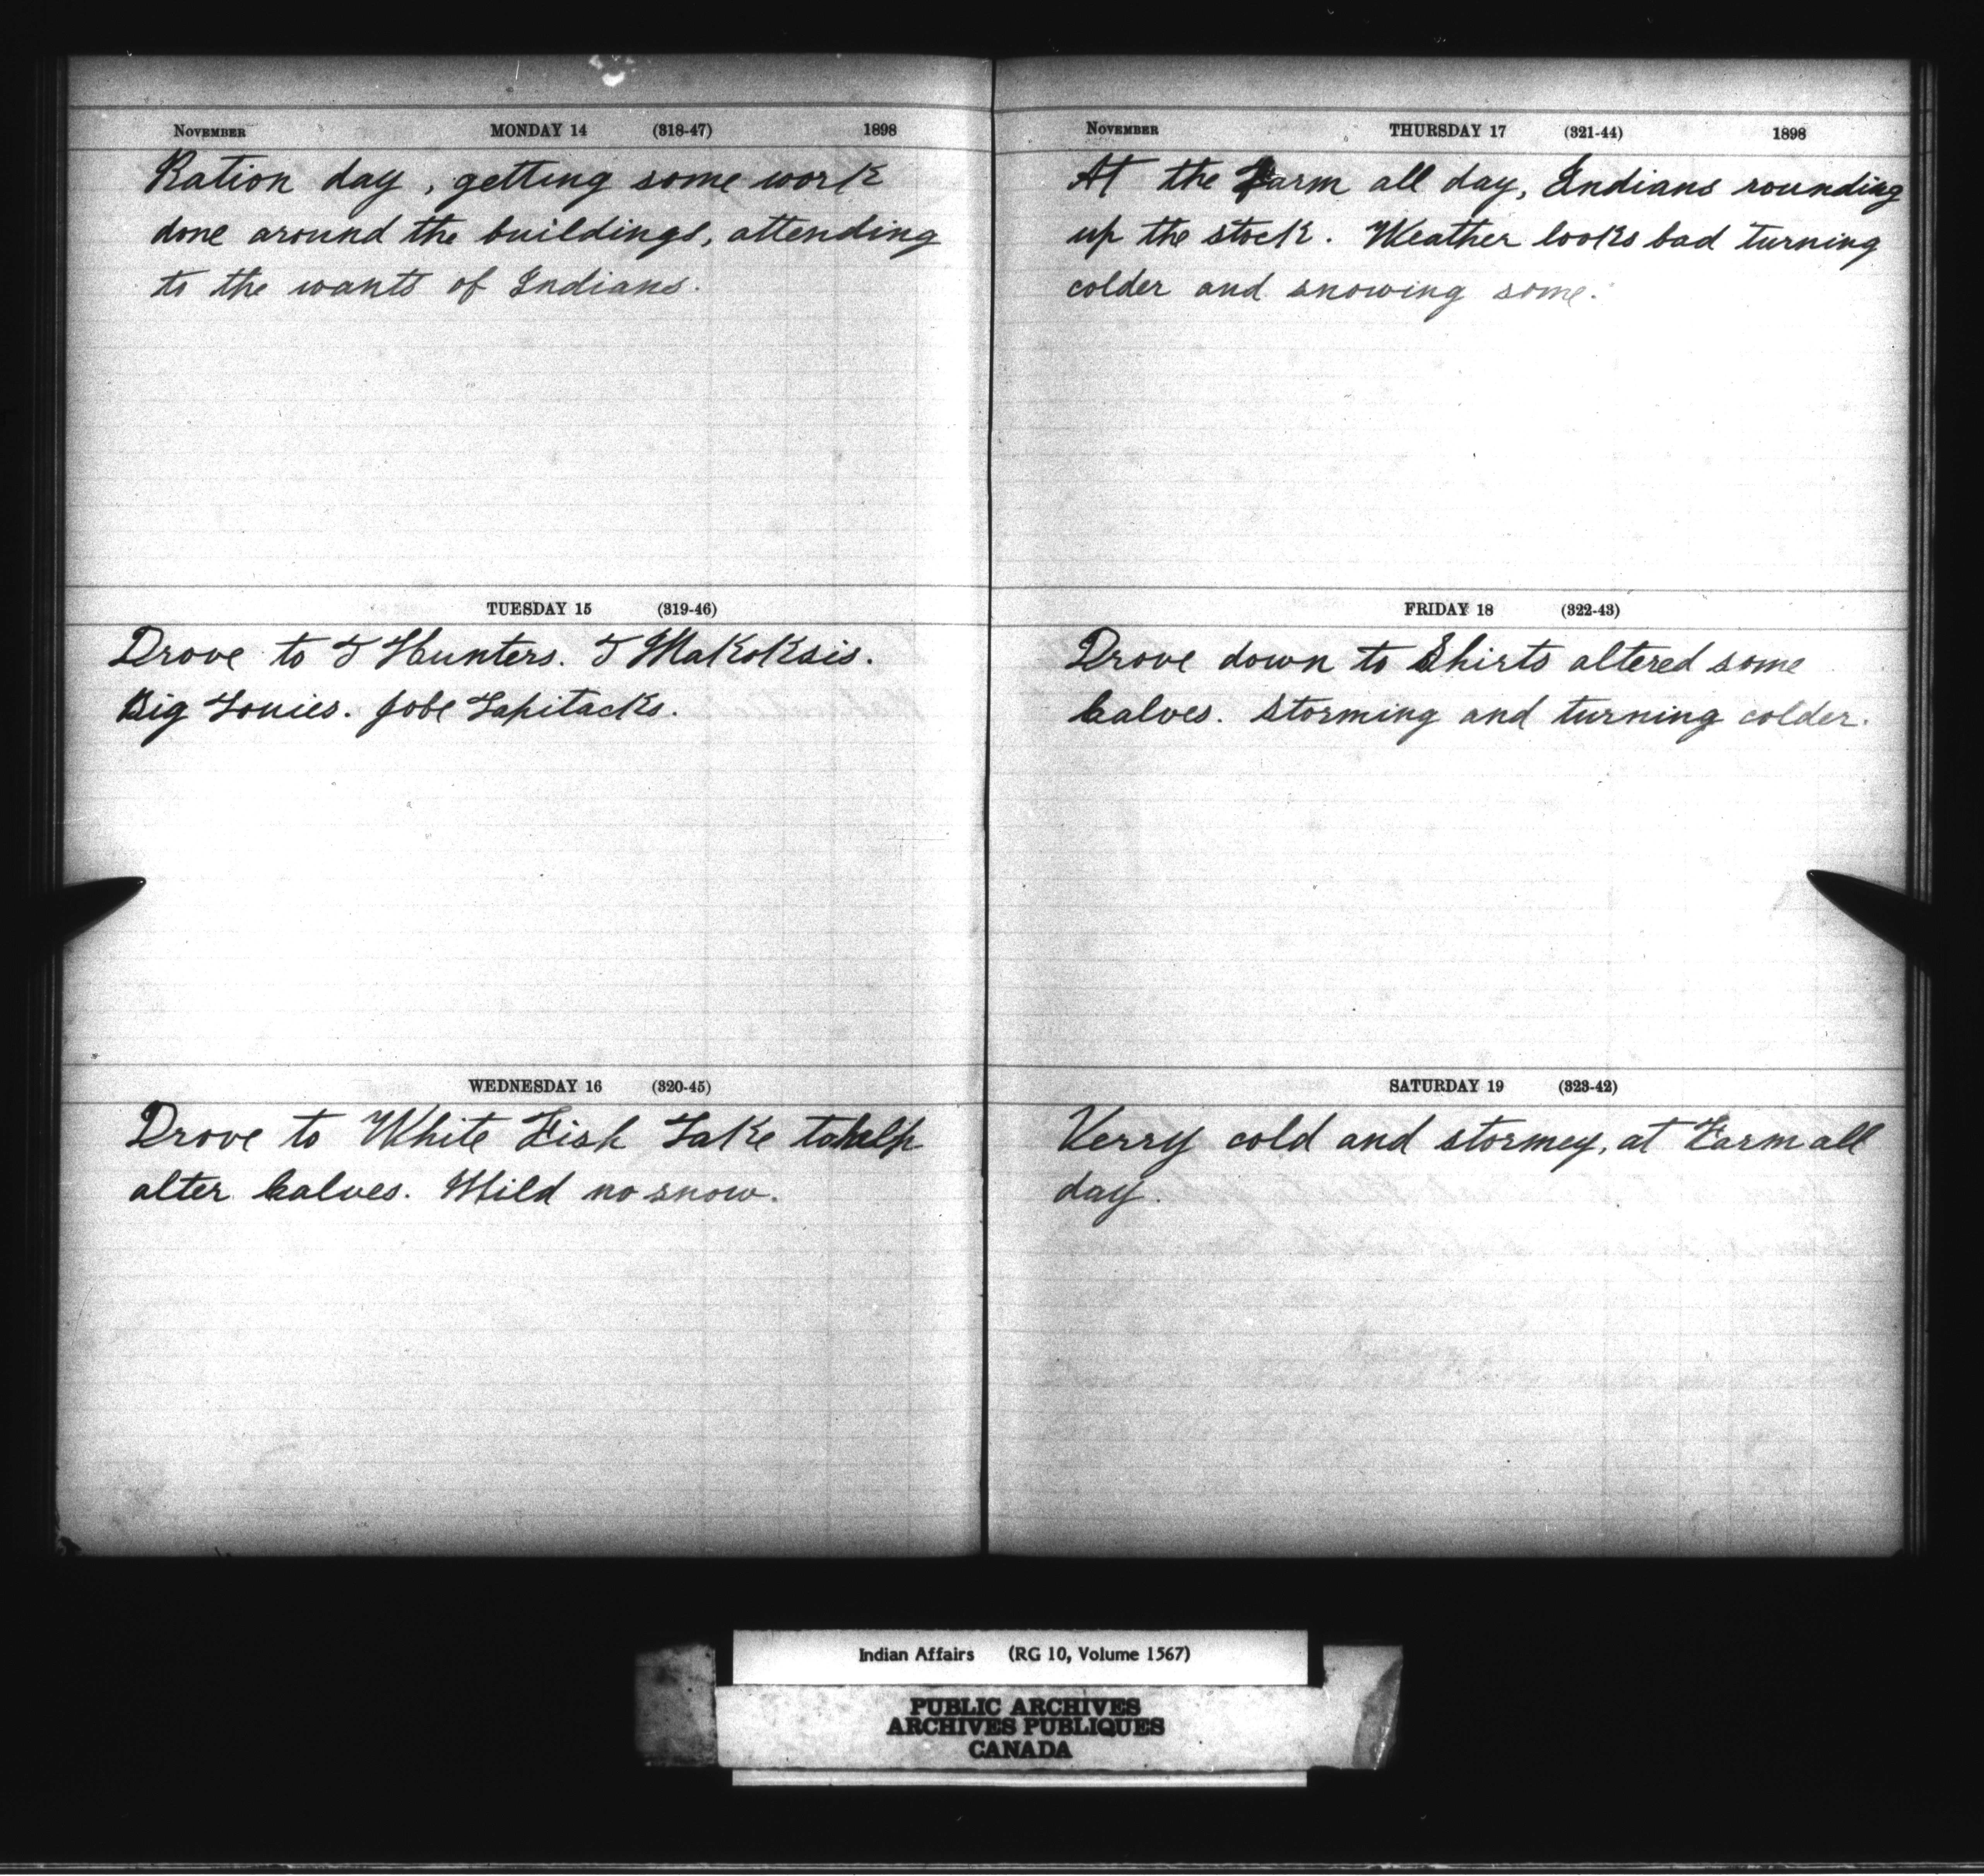 November MONDAY 14 (318-47) 1898
Ration day, getting some work
done around the buildings, attending
to the wants of Indians.
TUESDAY 15 (319-46)
Drove to J Hunters. J Makoksis.
Big Louies. Jobe Lapitacks.
WEDNESDAY 16 (320-45)
Drove to White Fish Lake to help
alter Calves. Mild no snow.
November THURSDAY 17 (321-44) 1898
At the Farm all day, Indians rounding
up the stock. Weather looks bad turning
colder and snowing some.
FRIDAY 18 (322-43)
Drove down to Shirts altered some
Calves. Storming and turning colder.
SATURDAY 19 (323-42)
Verry cold and stormey, at Farm all
day.
Indian Affairs (RG 10, Volume 1567)
PUBLIC ARCHIVES
ARCHIVES PUBLIQUES
CANADA